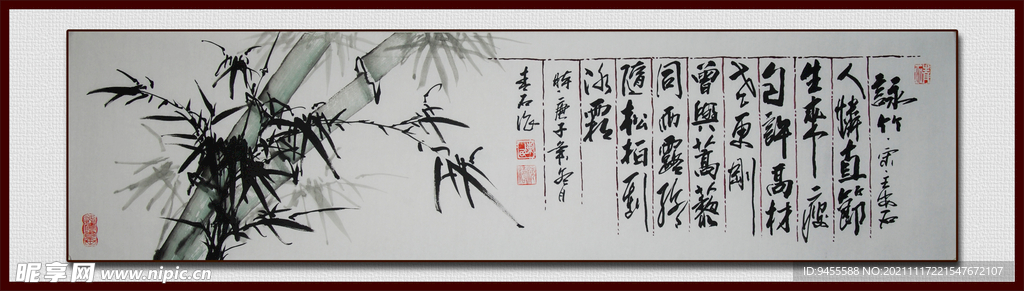 詠竹 宋 王安石
人憐直節
生來瘦
自許高材
老更剛
曾與蒿藜
同雨露終
隨松柏到
冰霜
時庚子冬月
昵享网 www.nipic.cn
ID:9455588 NO:20211117221547672107